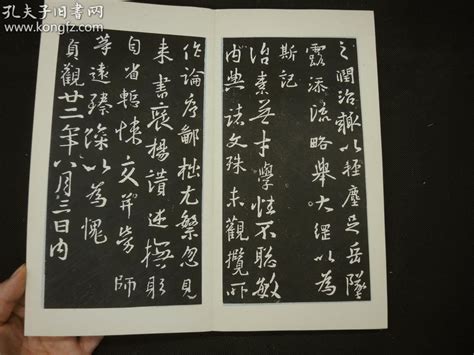 孔夫子旧书网
www.kongfz.com
之潤治輒以輕塵足岳墜
露添流略舉大綱以為
斯記
治素無才學性不聰敏
內典諸文殊未觀覽所
作論序鄙拙尤繁忽見
來書褒揚讚述撫躬
自省慚悚交并勞師
等遠臻深以為愧
貞觀廿二年八月三日內